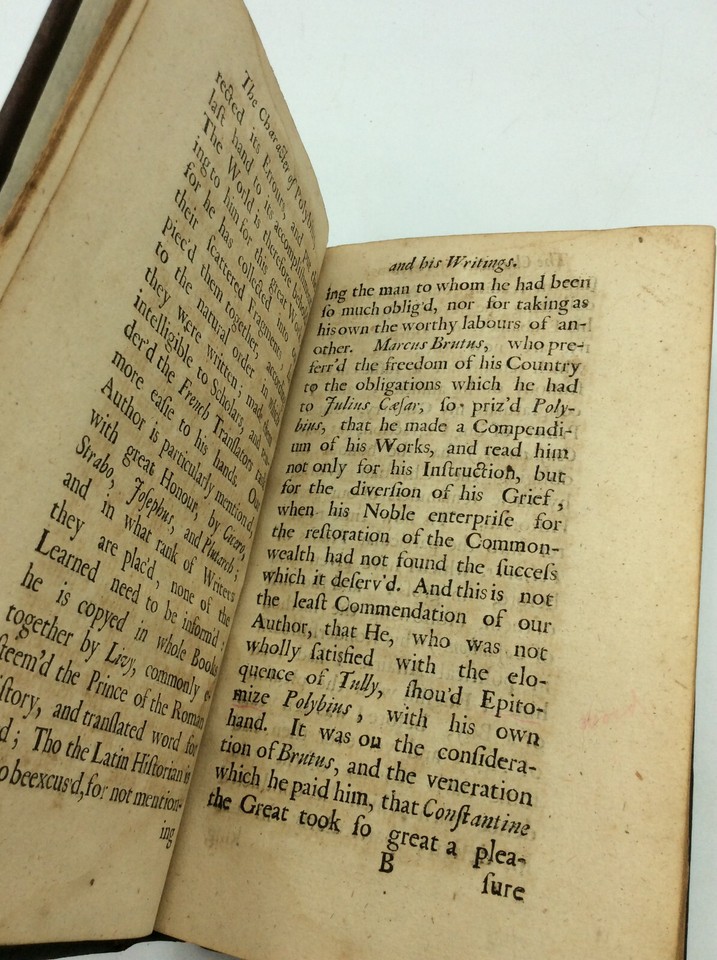 The Character of Polybius,
rected its Errours, and put the
last hand to its accomplishment.
The World is therefore behold-
ing to him for this great Work;
for he has collected into one
their scattered Fragments,
piec'd them together, according
to the natural order in which
they were written; made them
intelligible to Scholars, and ren-
der'd the French Translators task
more easie to his hands. Our
Author is particularly mention'd,
with great Honour, by Cicero,
Strabo, Josephus, and Plutarch;
and in what rank of Writers
they are plac'd, none of the
Learned need to be inform'd:
he is copyed in whole Books
together by Livy, commonly e-
steem'd the Prince of the Roman
istory, and translated word for
d; Tho the Latin Historian is
o beexcus'd, for not mention-
ing
and his Writings.
ing the man to whom he had been
ſo much oblig'd, nor for taking as
his own the worthy labours of an-
other. Marcus Brutus, who pre-
ferr'd the freedom of his Country
to the obligations which he had
to Julius Cæſar, ſo priz'd Poly-
bius, that he made a Compendi-
um of his Works, and read him
not only for his Inſtruction, but
for the diverſion of his Grief,
when his Noble enterpriſe for
the reſtoration of the Common-
wealth had not found the ſucceſs
which it deſerv'd. And this is not
the leaſt Commendation of our
Author, that He, who was not
wholly ſatisfied with the elo-
quence of Tully, ſhou'd Epito-
mize Polybius, with his own
hand. It was on the conſidera-
tion of Brutus, and the veneration
which he paid him, that Conſtantine
the Great took ſo great a plea-
B
ſure